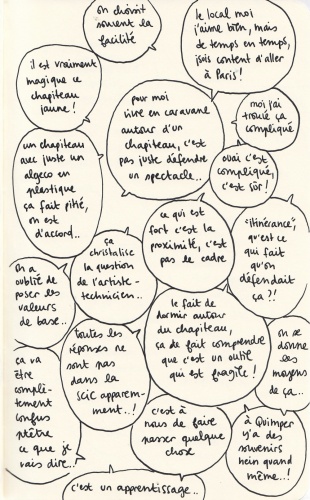 on choisit
souvent la
facilité
le local moi
j'aime bien, mais
de temps en temps,
j'suis content d'aller
à Paris !
il est vraiment
magique ce
chapiteau
jaune !
pour moi
vivre en caravane
autour d'un
chapiteau, c'est
pas juste défendre
un spectacle...
moi j'ai
trouvé ça
compliqué
un chapiteau
avec juste un
algeco en
plastique
ça fait pitié,
on est
d'accord...
ouai c'est
compliqué,
c'est sûr !
ce qui est
fort c'est la
proximité, c'est
pas le cadre
"itinérance",
qu'est ce
qui fait
qu'on
défendait
ça ?!
ça
christalise
la question
de l'artiste-
technicien...
on a
oublié de
poser les
valeurs
de base...
le fait de
dormir autour
du chapiteau,
ça de fait comprendre
que c'est un outil
qui est fragile !
toutes les
réponses ne
sont pas
dans la
SCIC apparem-
ment...!
on se
donne
les
moyens
de ça...
ça va
être
complè-
tement
confus
ptêtre
ce que je
vais dire...!
c'est à
nous de faire
passer quelque
chose
à Quimper
y'a des
souvenirs
hein quand
même...!
c'est un apprentissage...